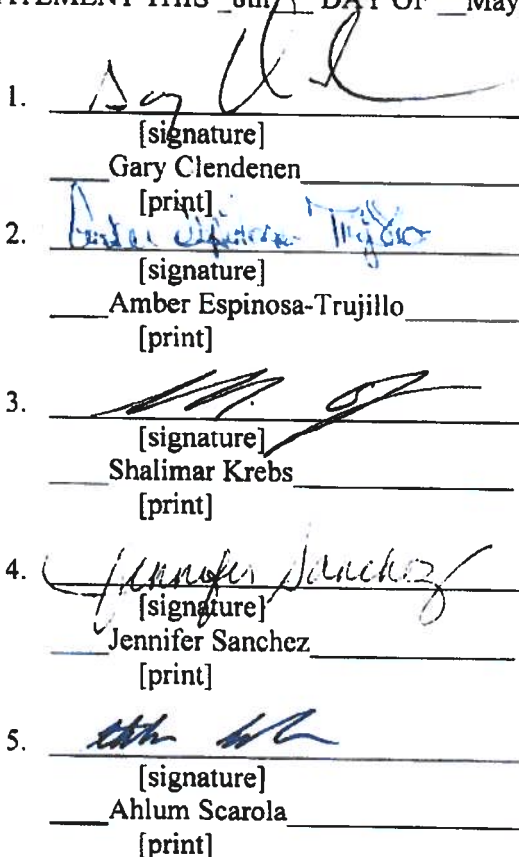 ATEMENT THIS _8th_ DAY OF __May
1.
[signature]
Gary Clendenen
[print]
2. Amber Espinosa Trujillo
[signature]
Amber Espinosa-Trujillo
[print]
3.
[signature]
Shalimar Krebs
[print]
4. Jennifer Sanchez
[signature]
Jennifer Sanchez
[print]
5.
[signature]
Ahlum Scarola
[print]